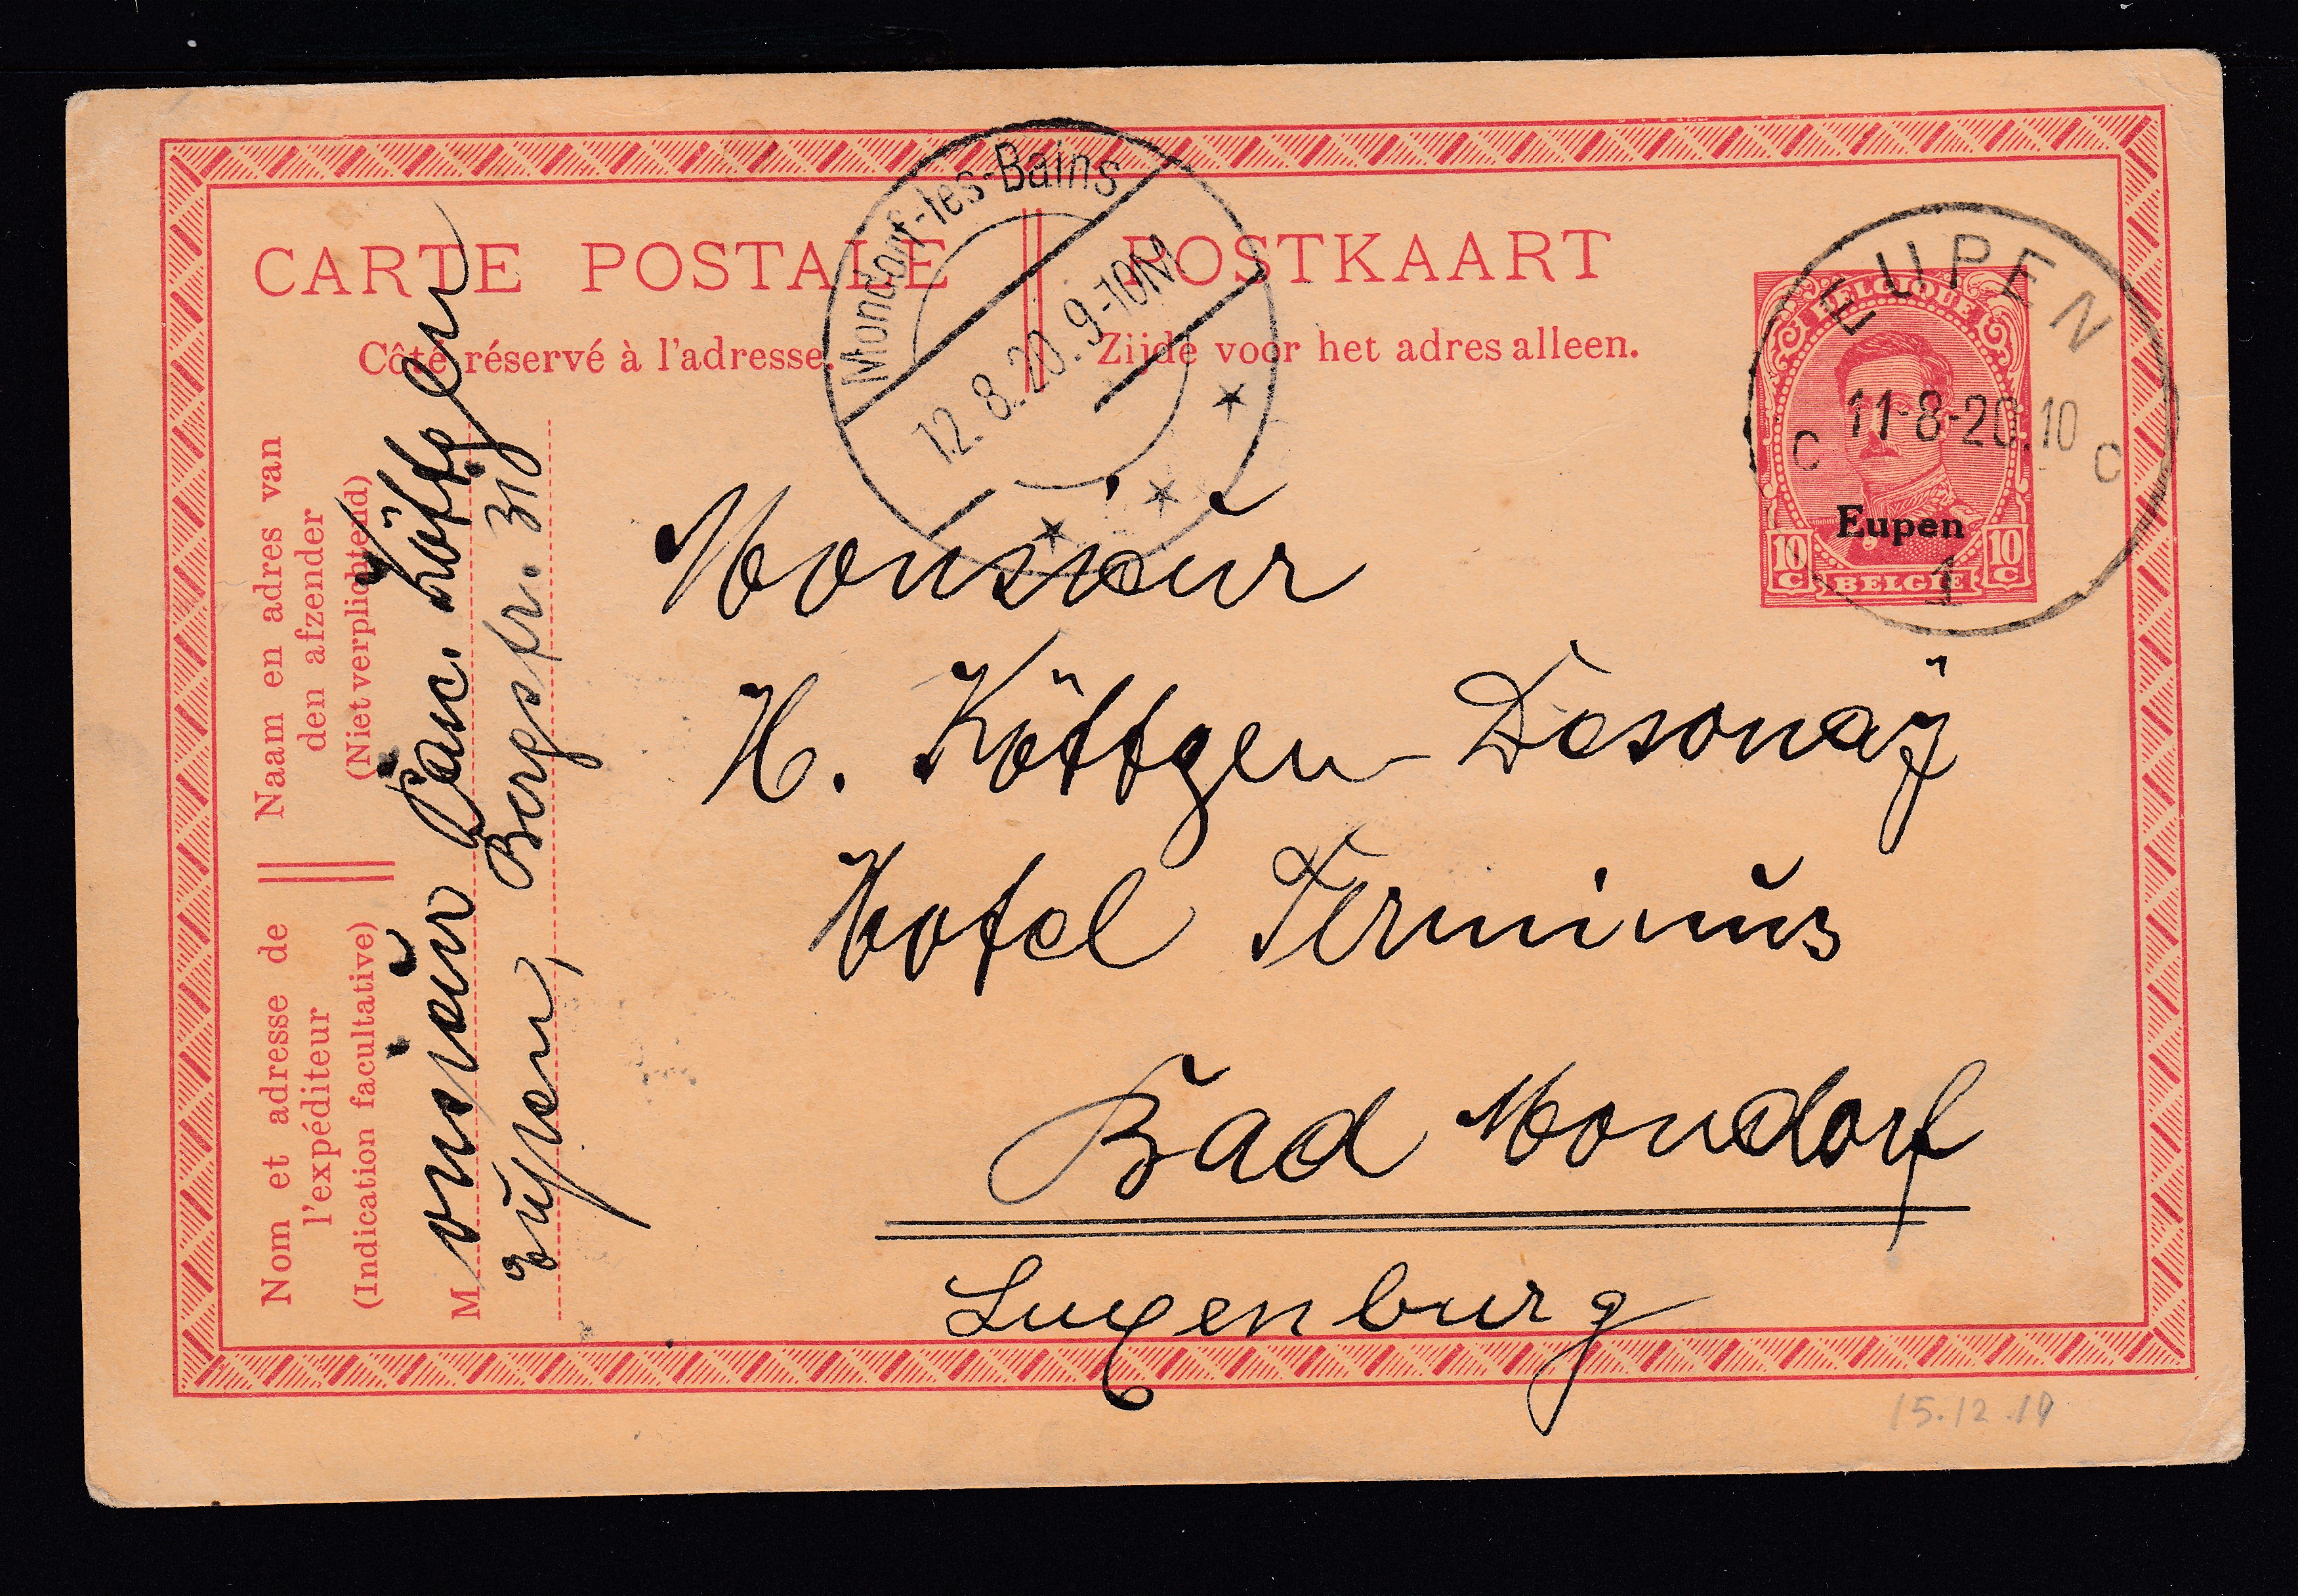 CARTE POSTALE
POSTKAART
Côté réservé à l'adresse.
Zijde voor het adres alleen.
Mondorf-les-Bains
12.8.20. 9-10N
EUPEN
11-8-20.10
C C
1
BELGIQUE
Eupen
10 C 10 C
BELGIE
Naam en adres van
den afzender
(Niet verplichtend)
Nom et adresse de
l'expéditeur
(Indication facultative)
Monsieur Köttgen
Eupen, Bergstr. 31
Monsieur
H. Köttgen-Desonaÿ
Hotel Terminus
Bad Mondorf
Luxenburg
15.12.19